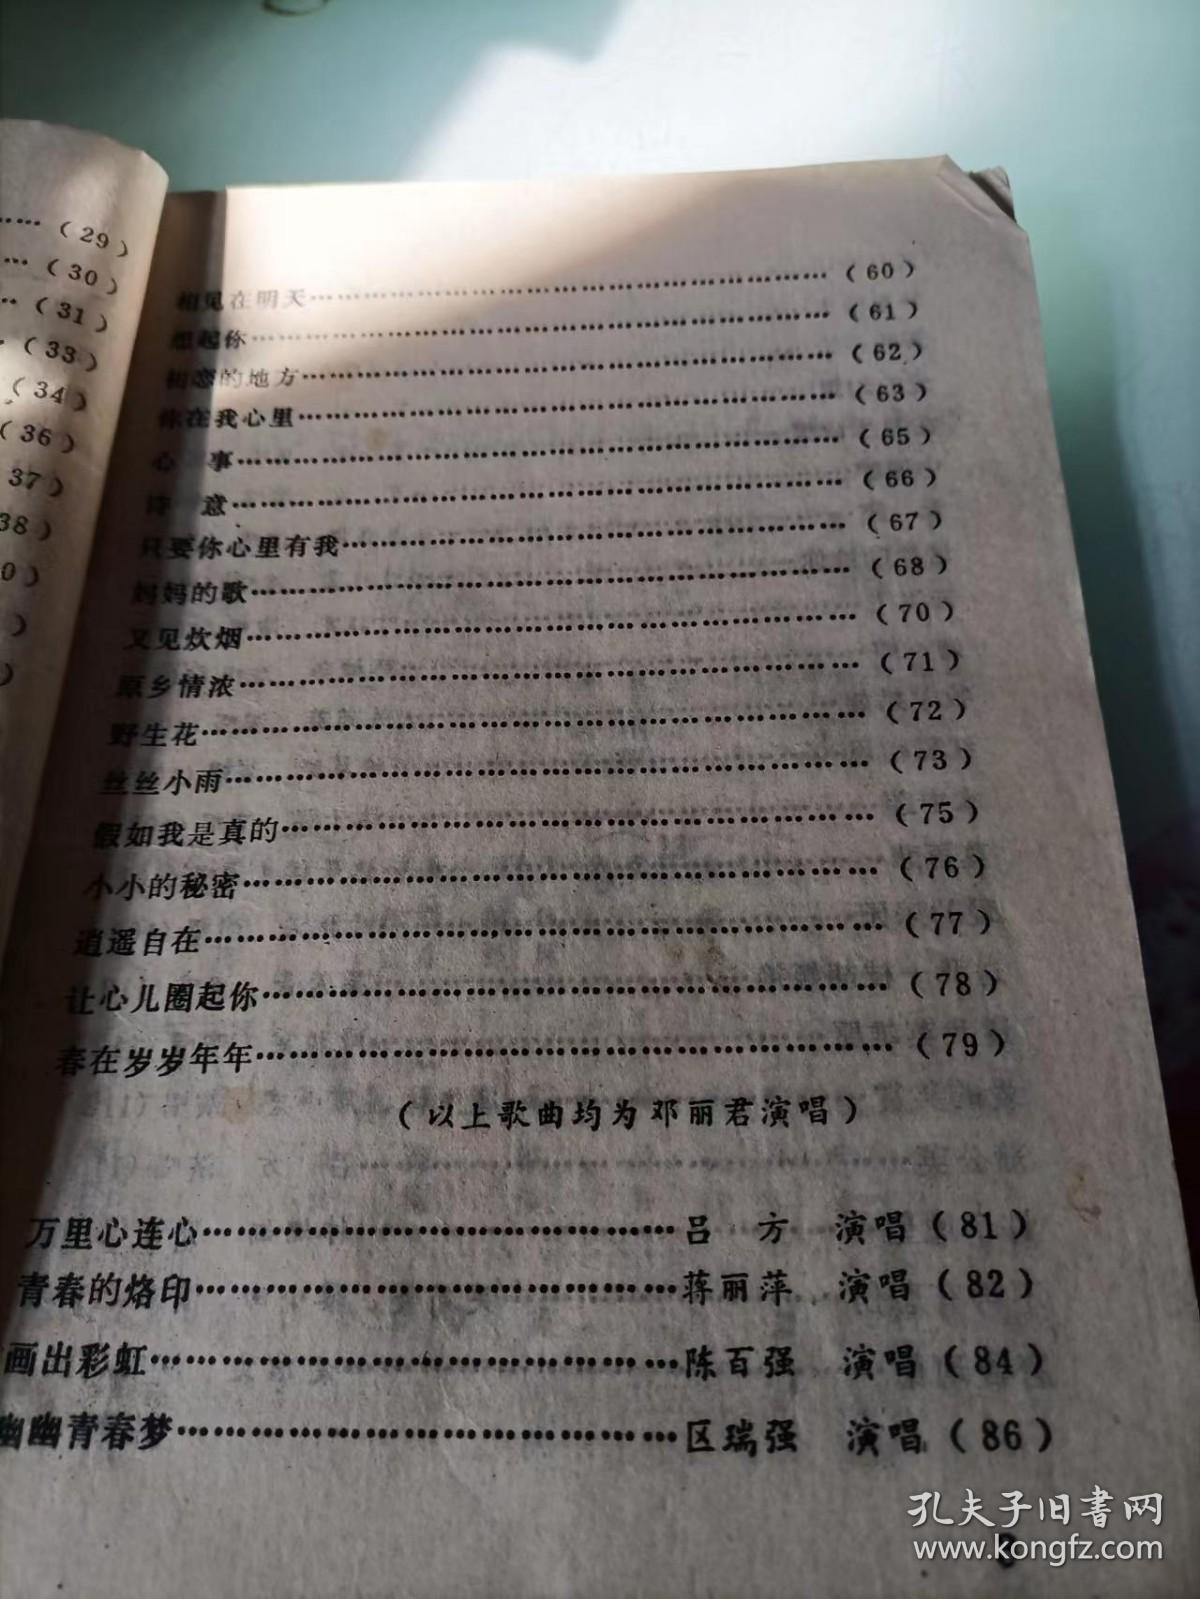 ……（29）
…（30）
…（31）
（33）
（34）
（36）
37）
38）
0）
）
）
相见在明天……………………………………………（60）
想起你……………………………………………………（61）
初恋的地方………………………………………………（62）
你在我心里………………………………………………（63）
心　事……………………………………………………（65）
诗　意……………………………………………………（66）
只要你心里有我…………………………………………（67）
妈妈的歌…………………………………………………（68）
又见炊烟…………………………………………………（70）
原乡情浓…………………………………………………（71）
野生花……………………………………………………（72）
丝丝小雨…………………………………………………（73）
假如我是真的……………………………………………（75）
小小的秘密………………………………………………（76）
逍遥自在…………………………………………………（77）
让心儿圈起你……………………………………………（78）
春在岁岁年年……………………………………………（79）
（以上歌曲均为邓丽君演唱）
万里心连心……………………………………吕　方　演唱（81）
青春的烙印……………………………………蒋丽萍　演唱（82）
画出彩虹………………………………………陈百强　演唱（84）
幽幽青春梦……………………………………区瑞强　演唱（86）
孔夫子旧书网
www.kongfz.com